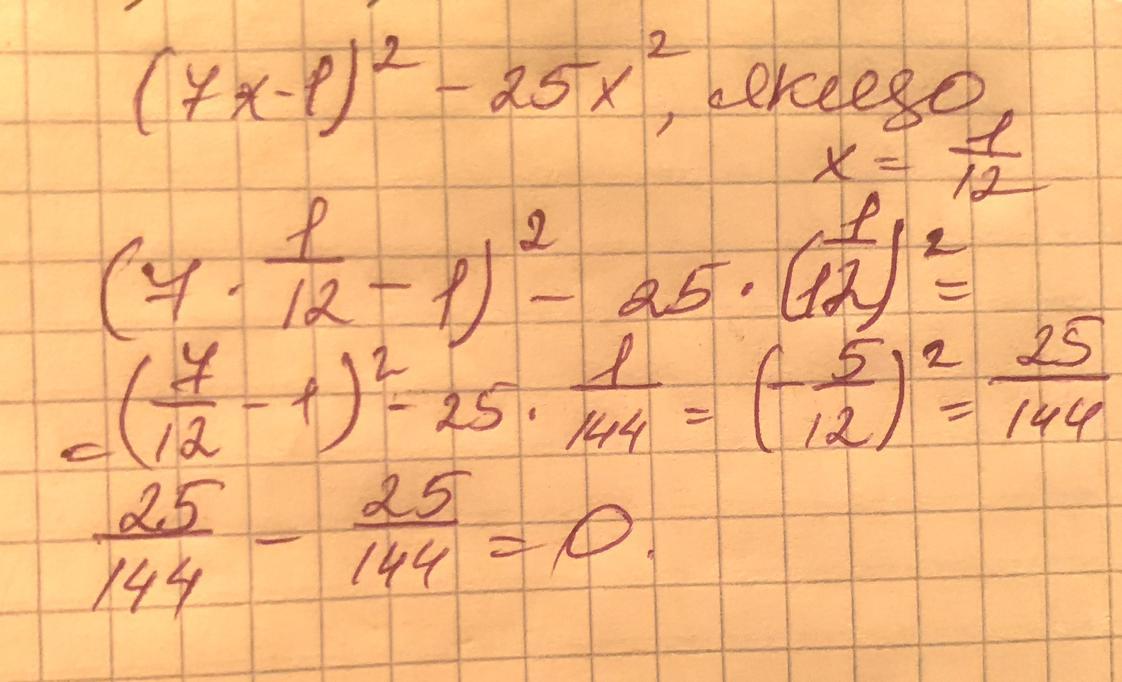 (7x-1)² - 25x², якщо
x = 1/12
(7 · 1/12 - 1)² - 25 · (1/12)² =
= (7/12 - 1)² - 25 · 1/144 = (-5/12)² = 25/144
25/144 - 25/144 = 0.